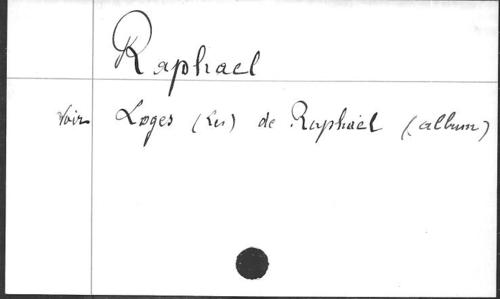 Raphael
Voir Loges (Les) de Raphaël (album)